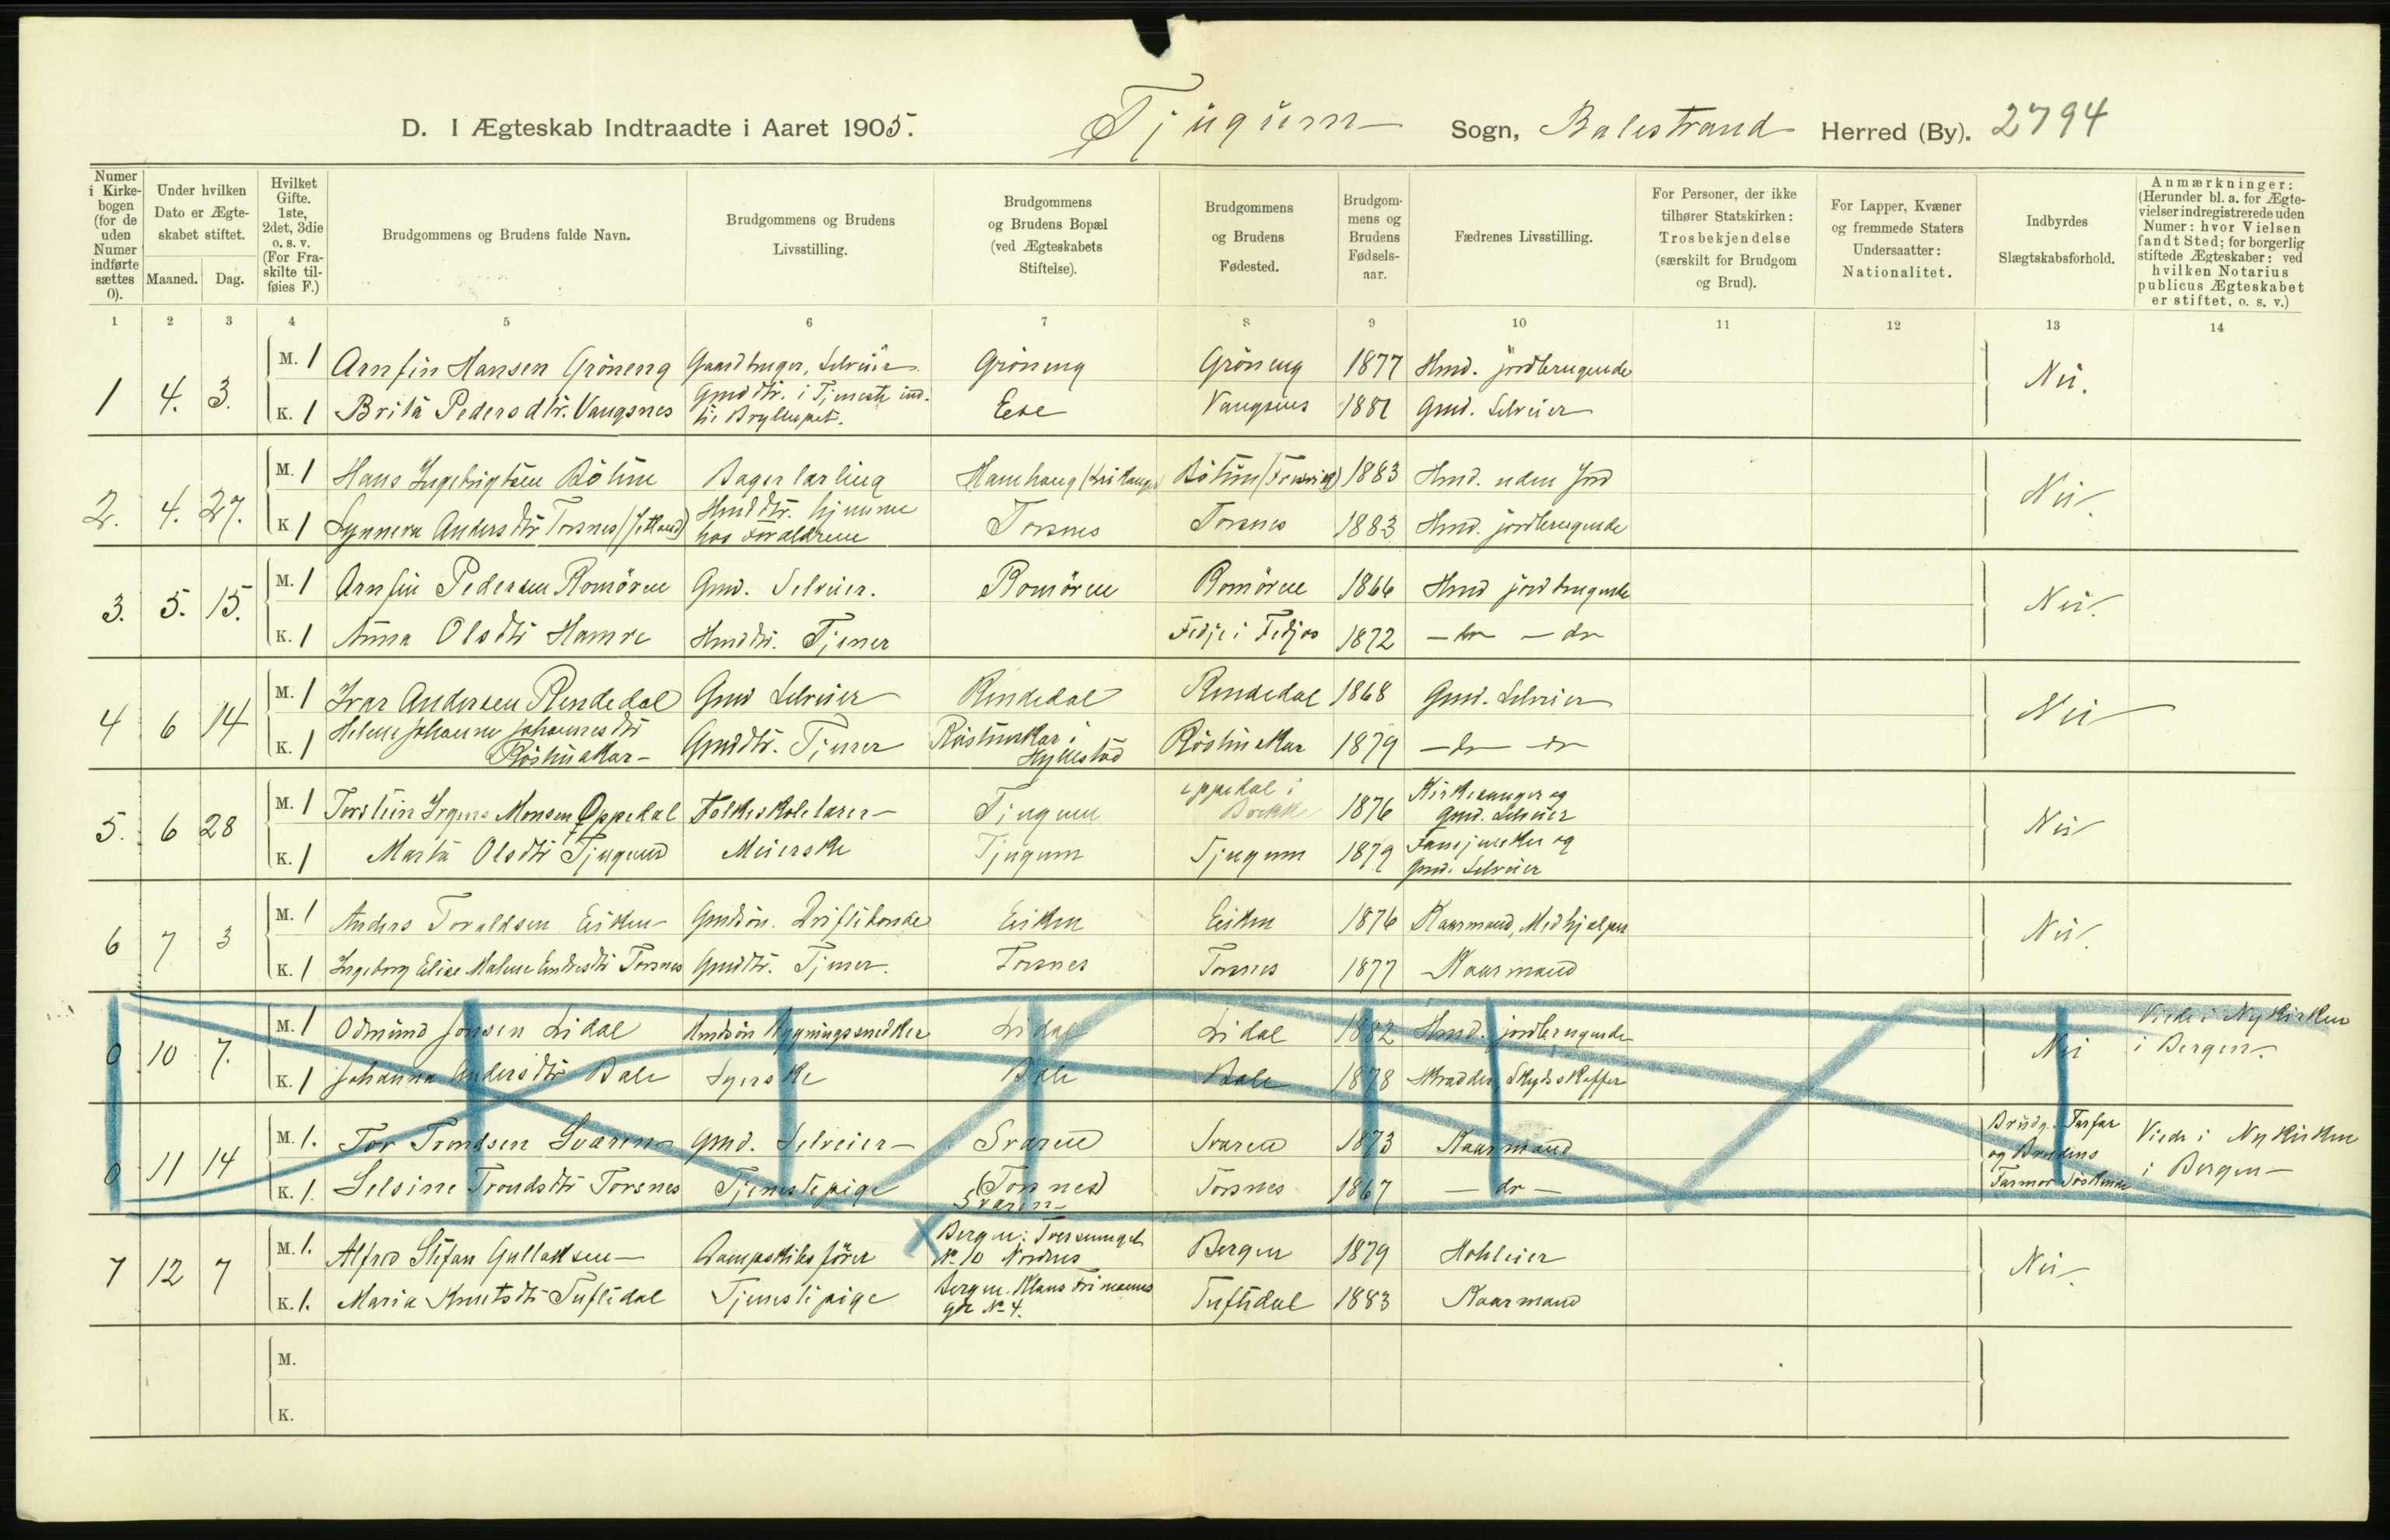 D. I Ægteskab Indtraadte i Aaret 1905. Tjugum Sogn, Balestrand Herred (By). 2794
Numer i Kirkebogen (for de uden Numer indførte sættes 0).
Under hvilken Dato er Ægteskabet stiftet.
Maaned. Dag.
Hvilket Gifte. 1ste, 2det, 3die o. s. v. (For Fraskilte tilføies F.)
Brudgommens og Brudens fulde Navn.
Brudgommens og Brudens Livsstilling.
Brudgommens og Brudens Bopæl (ved Ægteskabets Stiftelse).
Brudgommens og Brudens Fødested.
Brudgommens og Brudens Fødselsaar.
Fædrenes Livsstilling.
For Personer, der ikke tilhører Statskirken: Trosbekjendelse (særskilt for Brudgom og Brud).
For Lapper, Kvæner og fremmede Staters Undersaatter: Nationalitet.
Indbyrdes Slægtskabsforhold.
Anmærkninger: (Herunder bl. a. for Ægtevielser indregistrerede uden Numer: hvor Vielsen fandt Sted; for borgerlig stiftede Ægteskaber: ved hvilken Notarius publicus Ægteskabet er stiftet, o. s. v.)
1 2 3 4 5 6 7 8 9 10 11 12 13 14
1 4. 3.
M. 1 Arnfin Hansen Gröneng Gaardbruger, Selveier Gröneng Gröneng 1877 Hmd. jordbrugende
K. 1 Brita Pedersdtr. Vangsnes Gmddtr. i Tjeneste ind til Brylluppet. Ese Vangsnes 1881 Gmd. Selveier
Nei.
2. 4. 27.
M. 1 Hans Ingebrigtsen Bötun Bagerlærling Hamhaug Bötun 1883 Hmd. uden Jord
K. 1 Synneva Andersdtr Torsnes Hmddtr. hjemme hos Forældrene Torsnes Torsnes 1883 Hmd. jordbrugende
Nei.
3. 5. 15.
M. 1 Arnfin Pedersen Romören Gmd. Selveier. Romören Romören 1866 Hmd jordbrugende
K. 1 Anna Olsdtr Hamre Hmddtr. Tjener Fedje i Fedjos 1872 — do — do
Nei.
4 6 14
M. 1 Ivar Andersen Rendedal Gmd Selveier Rendedal Rendedal 1868 Gmd. Selveier
K. 1 Helene Johanne Johannesdtr Röstuskar Gmddtr. Tjener Röstuskar i Hyllestad Röstuskar 1879 — do — do
Nei
5. 6 28
M. 1 Torstein Irgens Monsen Oppedal Folkeskolelærer Tjugum Oppedal i Brekke 1876 Kirkesanger og Gmd. Selveier
K. 1 Marta Olsdtr Tjugum Meierske Tjugum Tjugum 1879 og Gmd. Selveier
Nei
6 7 3
M. 1 Anders Toraldsen Eiken Gmdsön. Driftsbonde Eiken Eiken 1876 Kaarmand, Medhjælper
K. 1 Ingeborg Elise Malene Endresdtr Torsnes Gmddtr. Tjener. Torsnes Torsnes 1877 Kaarmand
Nei.
0 10 7.
M. 1 Odmund Jonsen Lidal Hmdsön Bygningssnedker Lidal Lidal 1882 Hmd. jordbrugende
K. 1 Johanna Andersdtr Bale Syerske Bale Bale 1878 Skrædder, Skydsskaffer
Nei Viede i Nykirken i Bergen.
0 11 14
M. 1. Tor Trondsen Sværen Gmd. Selveier Sværen Sværen 1873 Kaarmand
K. 1. Selsine Trondsdtr Torsnes Tjenestepige (Torsnes) Sværen Torsnes 1867 — do —
Brudg. Farfar og Brudens Farmor Söskende Viede i Nykirken i Bergen
7 12 7
M. 1. Alfred Stefan Gullaksen Dampskibsförer Bergen: No 10 Nordnes Bergen 1879 Hohleier
K. 1. Maria Knutsdtr Tuftedal Tjenestepige Bergen. Klaus Frimanns gd No 4. Tuftedal 1883 Kaarmand
Nei.
M.
K.